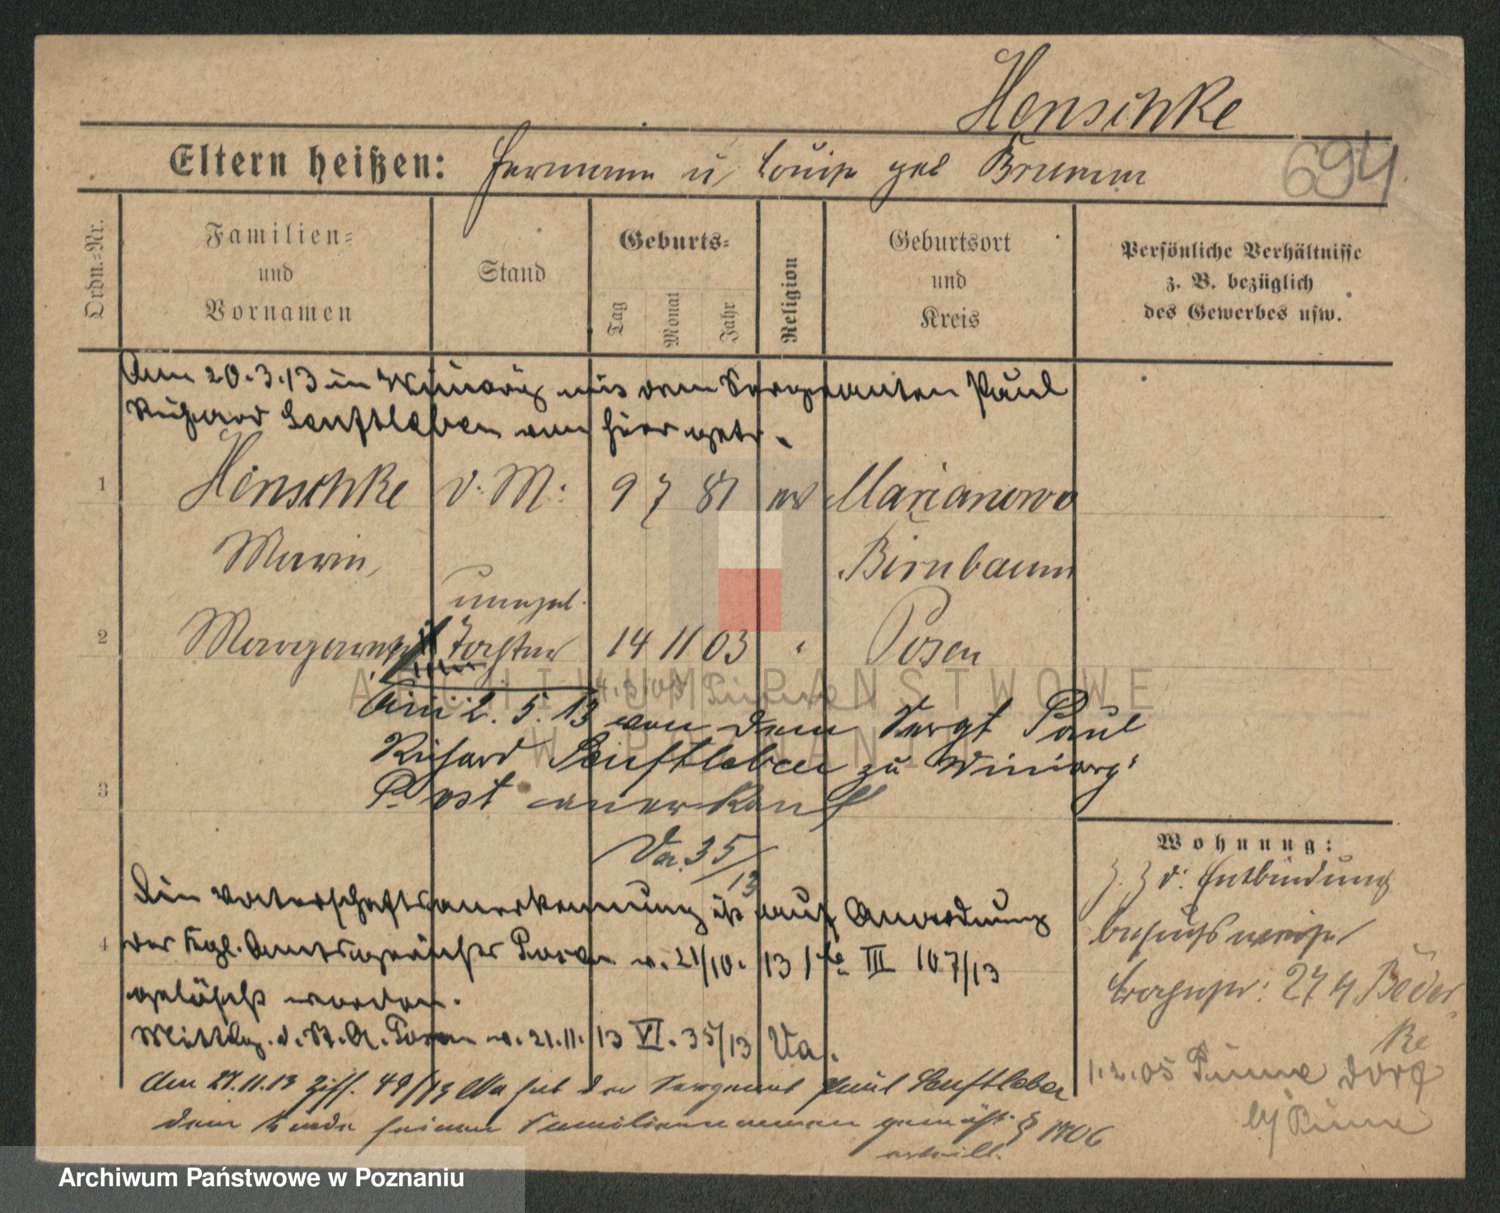 Henschke
Eltern heißen: Hermann u. Louise geb Brumm
694
Ordn.-Nr.
Familien-
und
Vornamen
Stand
Geburts-
Tag
Monat
Jahr
Religion
Geburtsort
und
Kreis
Persönliche Verhältnisse
z. B. bezüglich
des Gewerbes usw.
Am 20.3.13 in Winiary mit dem Sergeanten Paul
Richard Senftleben von hier getr.
1 Henschke d. M. 9 7 81 ev Marianowo
Marie, Birnbaum
unehel.
2 Margarethe Tochter 14 11 03 " Posen
Am 2. 5. 13 von dem Sergt Paul
Richard Senftleben zu Winiary
P. ost anerkannt
Va. 35/13
3
Wohnung:
z. Z d. Entbindung
Die Vaterschaftsanerkennung ist auf Anordnung
behufsweise
4 des Kgl. Amtsgerichts Posen v. 21/10. 13 III 107/13
274
gelöscht worden.
Mittlg. d. St. A. Posen v. 21.11.13 VI. 35/13 Va.
1.2.05 Pinne dorf
bei Pinne
Am 27.11.13 Ziff. 49/13 Va hat der Sergeant Paul Senftleben
dem Kinde seinen Familiennamen gemäß § 1706
erteilt.
ARCHIWUM PAŃSTWOWE
W POZNANIU
Archiwum Państwowe w Poznaniu